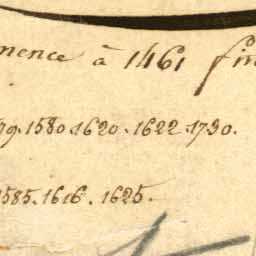 mence à 1461 fin
79. 1580 1620. 1622 1730.
1585. 1616. 1625.